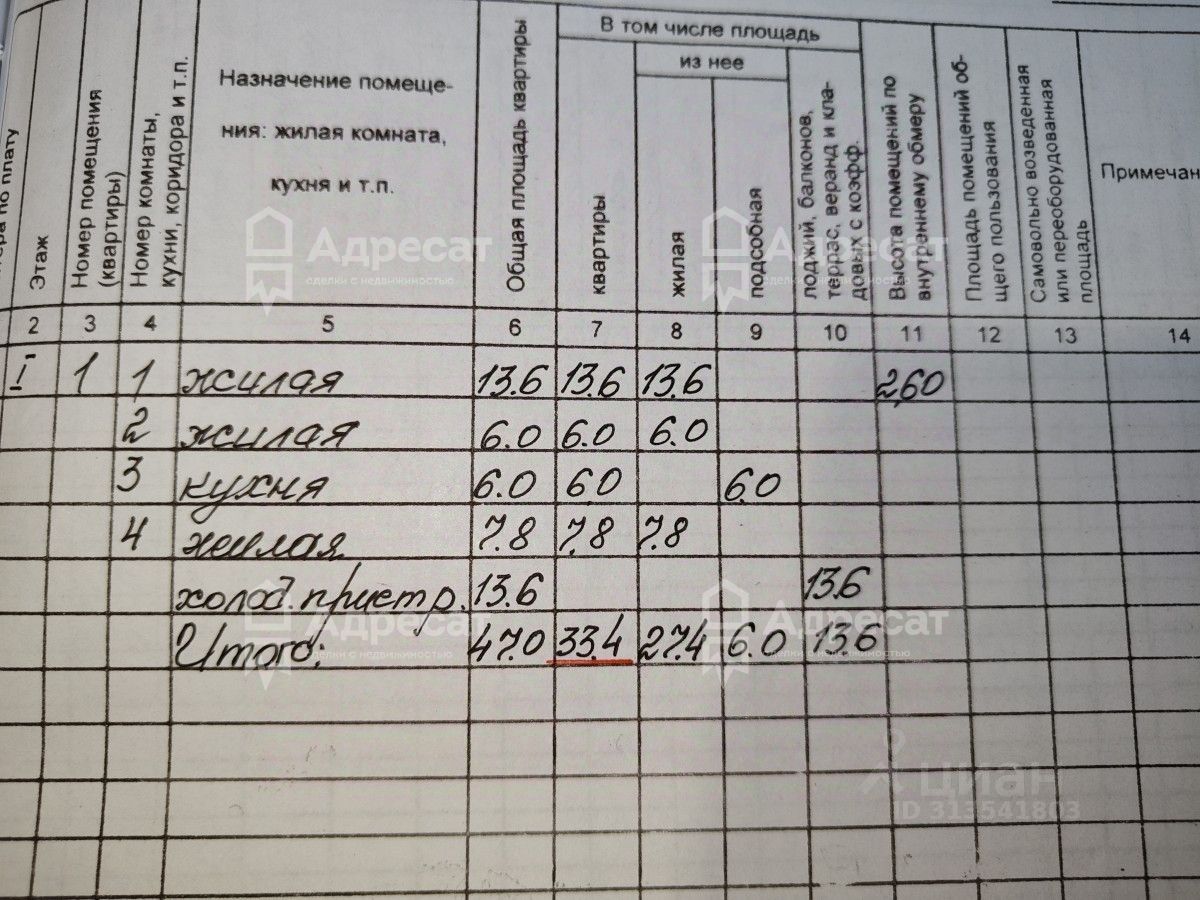 В том числе площадь
из нее
по плату
Этаж
Номер помещения (квартиры)
Номер комнаты, кухни, коридора и т.п.
Назначение помеще-
ния: жилая комната,
кухня и т.п.
Общая площадь квартиры
квартиры
жилая
подсобная
лоджий, балконов, террас, веранд и кла-довых с коэфф.
Высота помещений по внутреннему обмеру
Площадь помещений об-щего пользования
Самовольно возведенная или переоборудованная площадь
Примечан
2 3 4 5 6 7 8 9 10 11 12 13 14
I 1 1 жилая 13.6 13.6 13.6 2,60
2 жилая 6.0 6.0 6.0
3 кухня 6.0 60 6.0
4 жилая 7.8 7.8 7.8
холод. пристр. 13.6 13.6
Итого: 47.0 33.4 27.4 6.0 13.6
Адресат
сделки с недвижимостью
Адресат
сделки с недвижимостью
Адресат
сделки с недвижимостью
Адресат
сделки с недвижимостью
циан
ID 313541803